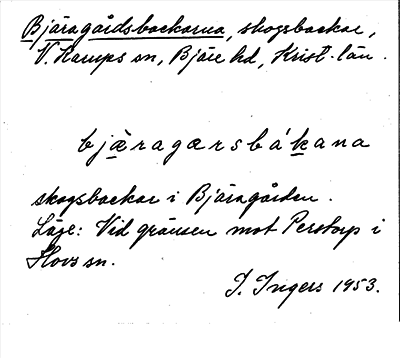 Bjäragårdsbackarna, skogsbackar,
V. Karups sn, Bjäre hd, Krist. län.
bjæragærsbákana
skogsbackar i Bjäragården.
Läge: Vid gränsen mot Perstorp i
Hovs sn.
I. Ingers 1953.